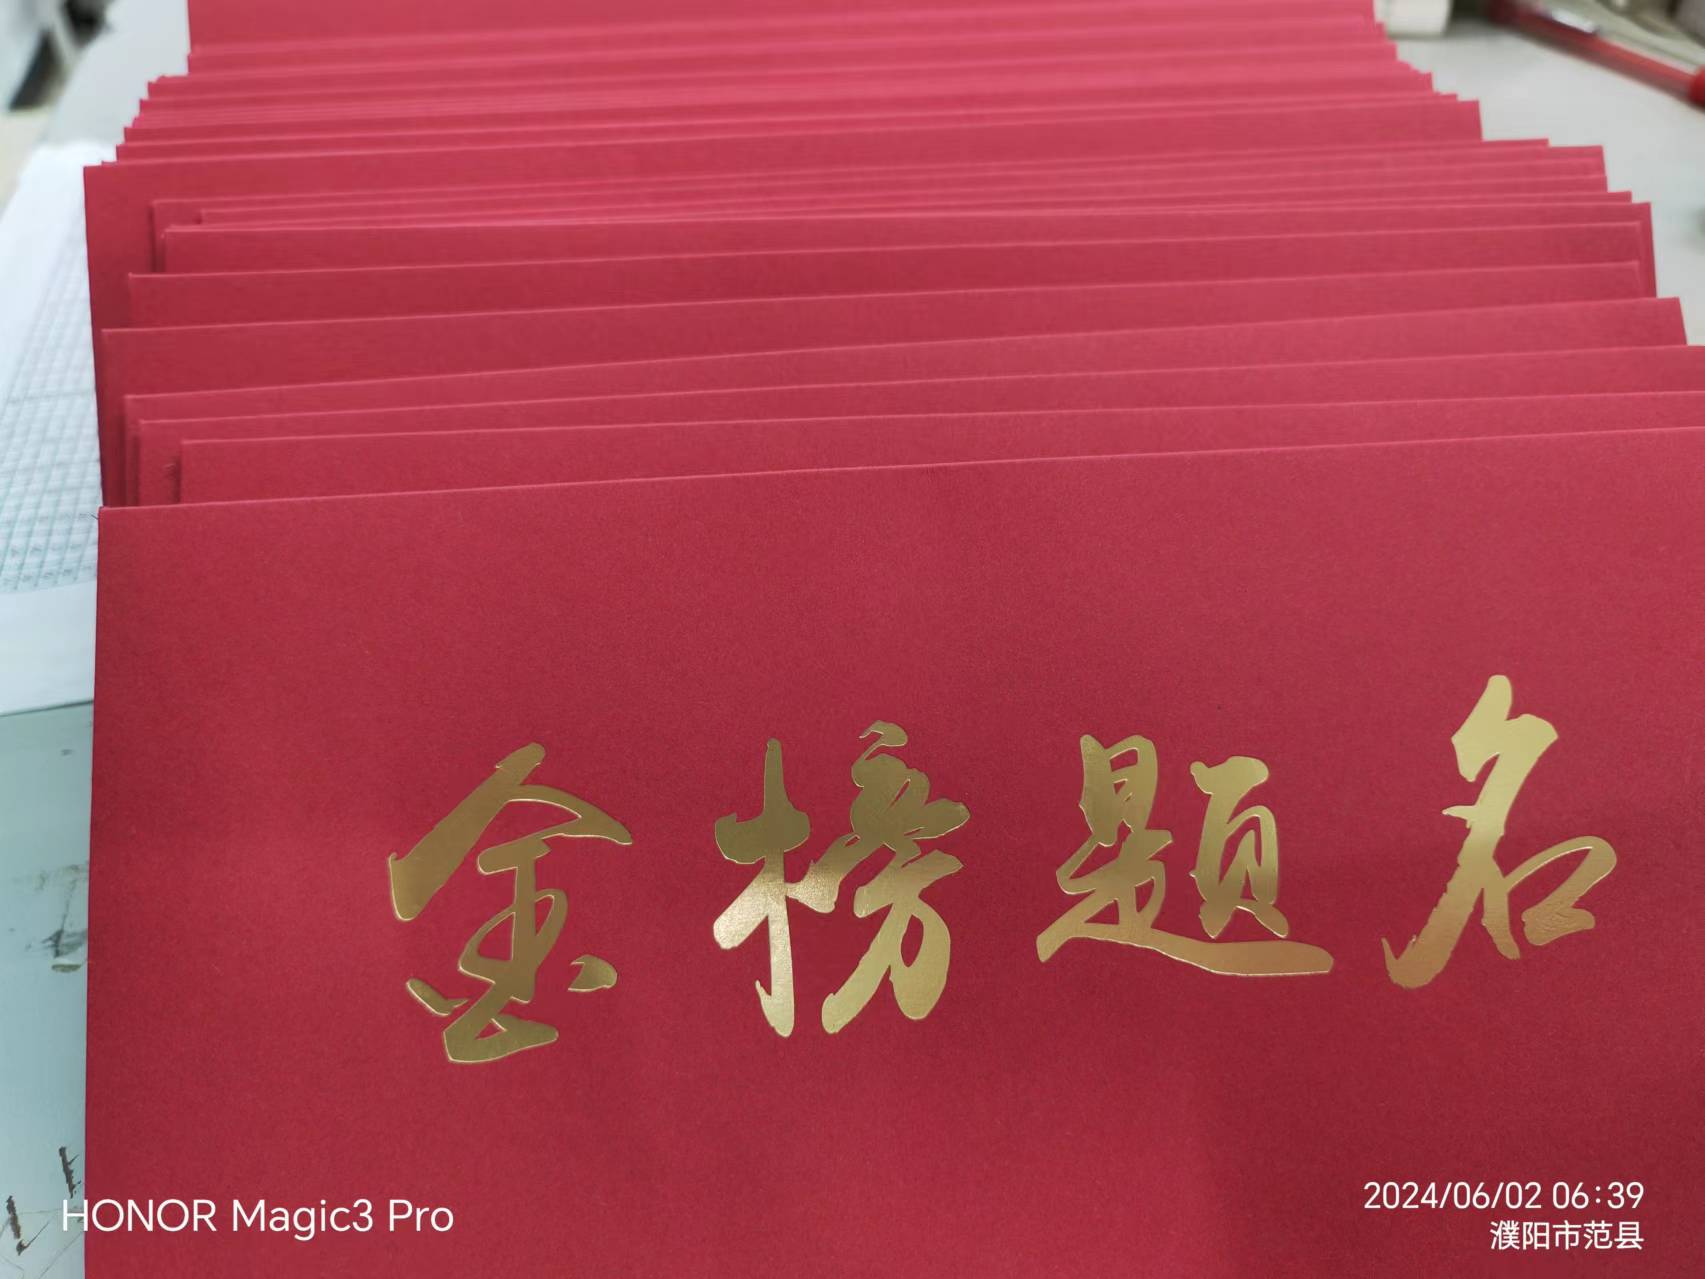 金榜题名
HONOR Magic3 Pro
2024/06/02 06:39
濮阳市范县